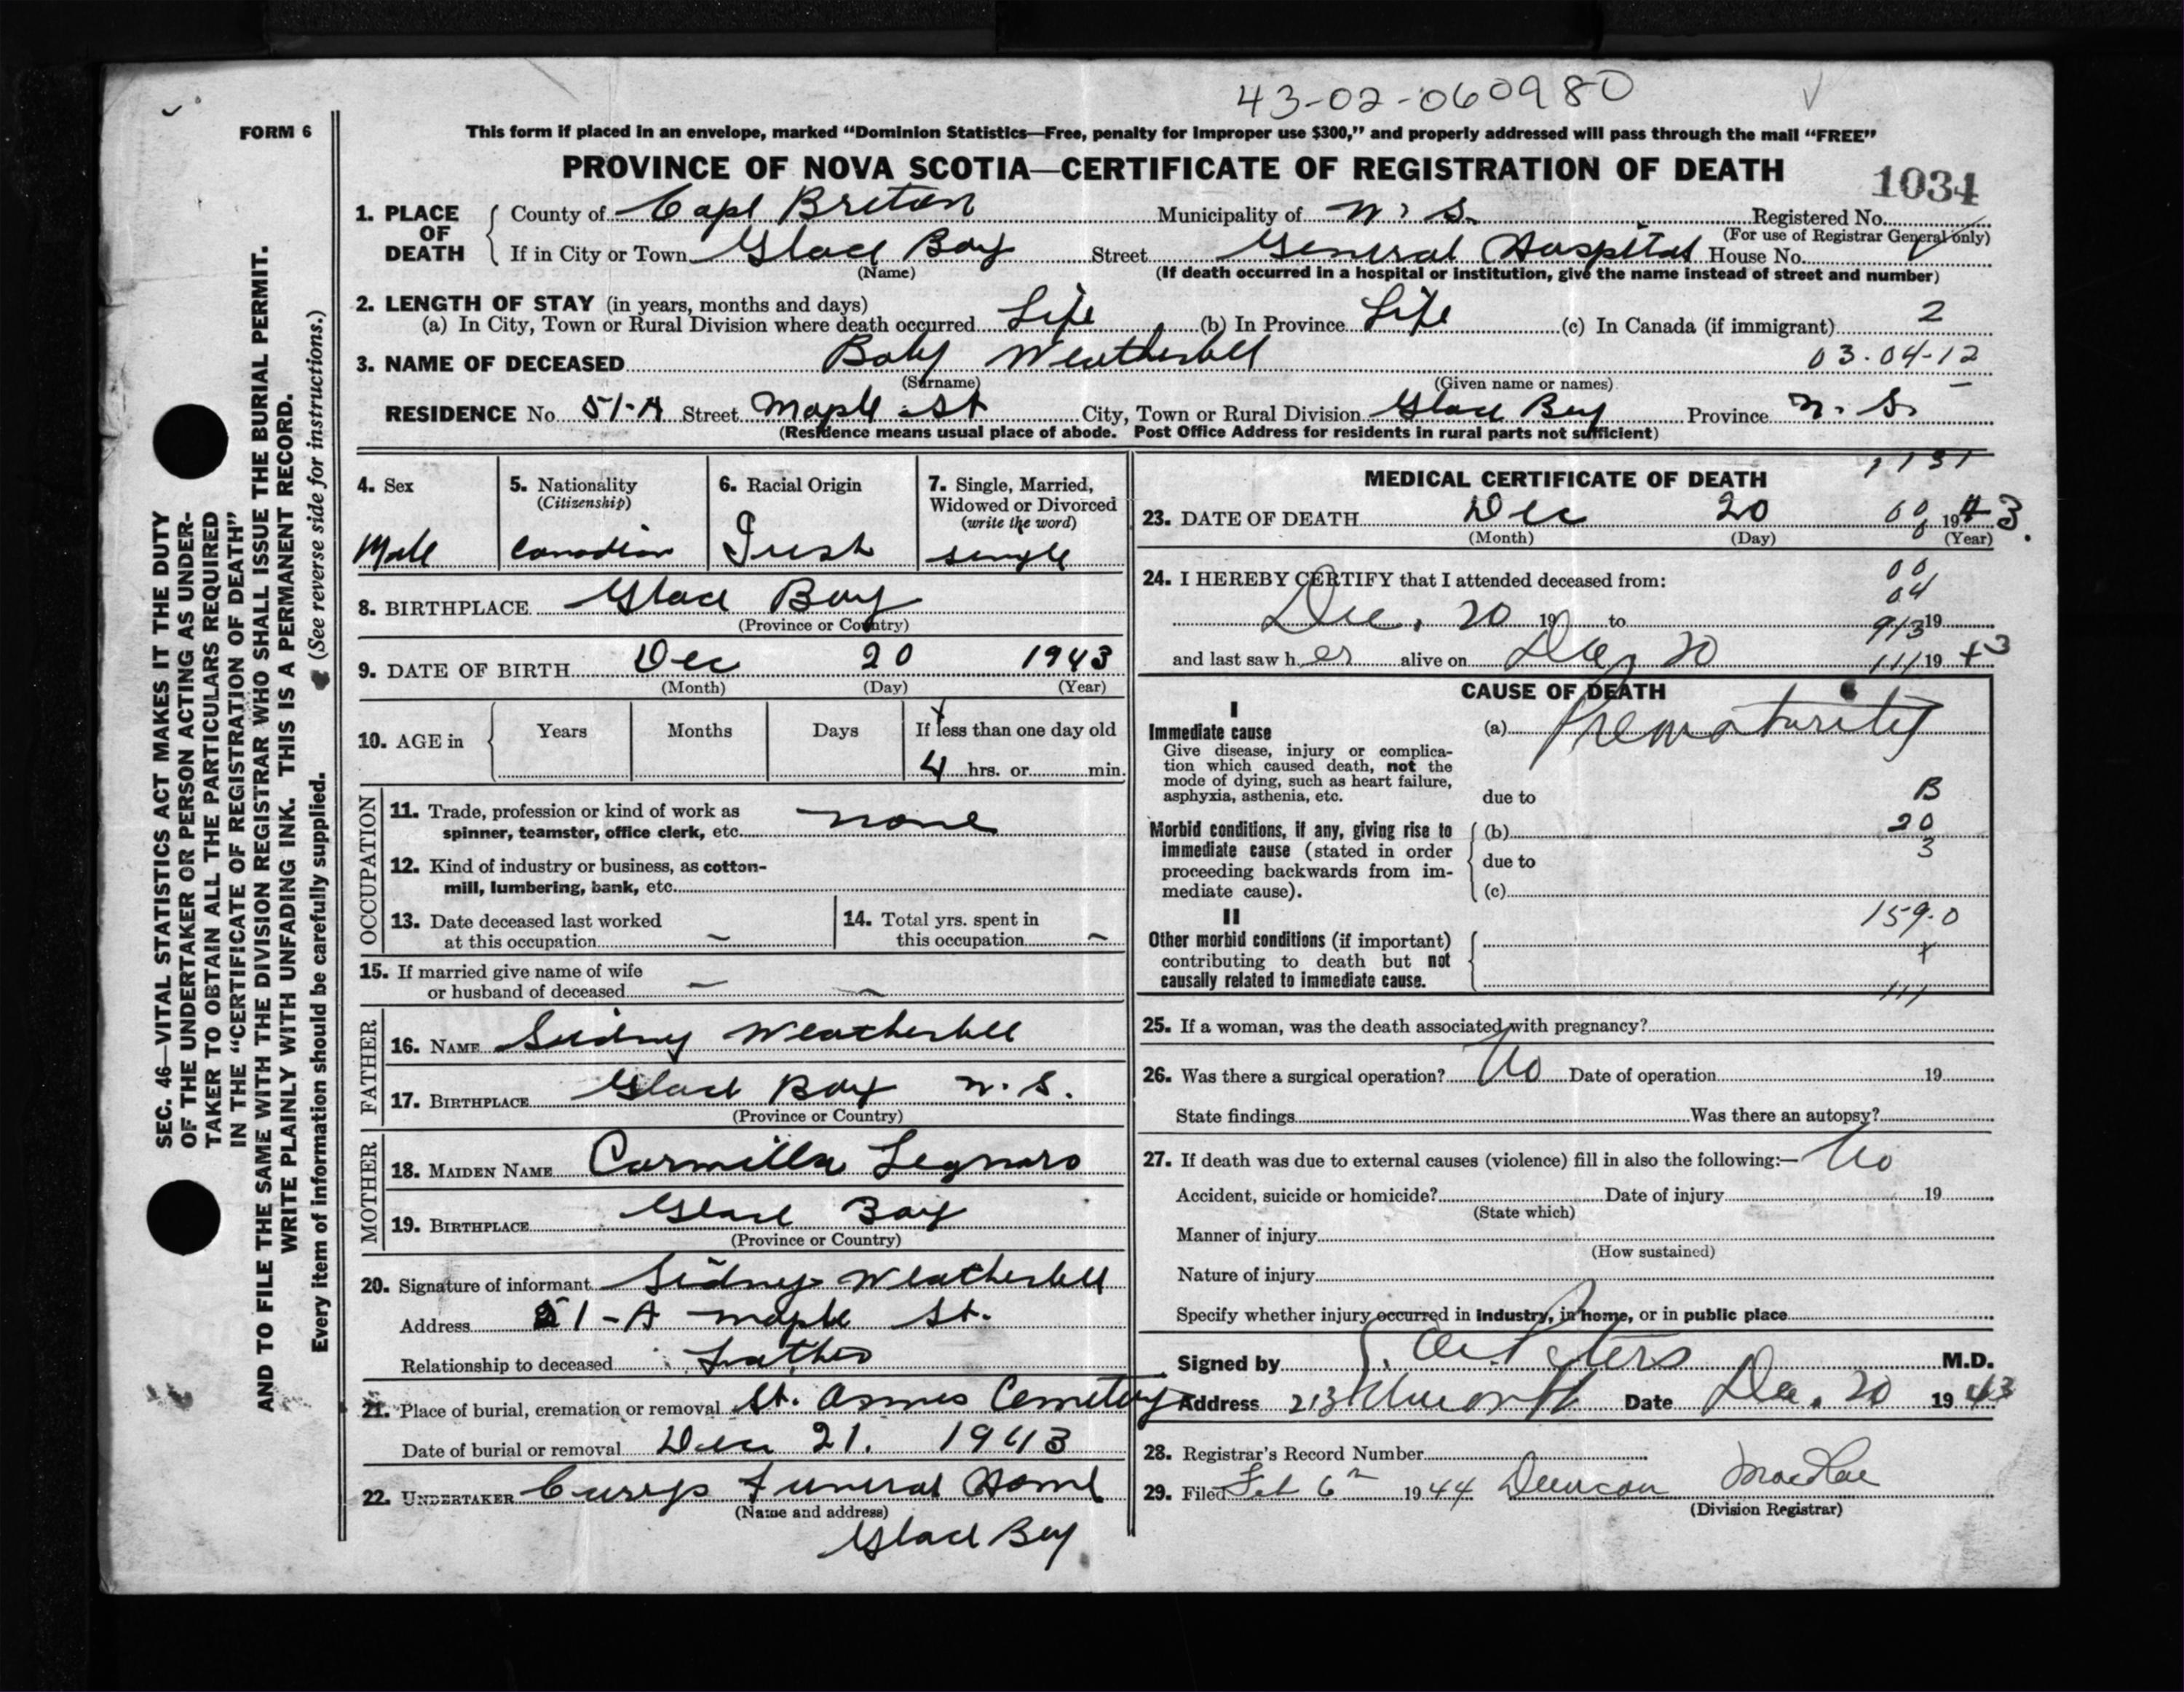 43-02-060980
FORM 6
This form if placed in an envelope, marked “Dominion Statistics—Free, penalty for improper use $300,” and properly addressed will pass through the mail “FREE”
PROVINCE OF NOVA SCOTIA—CERTIFICATE OF REGISTRATION OF DEATH
1034
1. PLACE OF DEATH { County of Cape Breton Municipality of N. S. Registered No.
(For use of Registrar General only)
If in City or Town Glace Bay Street General Hospital House No.
(Name) (If death occurred in a hospital or institution, give the name instead of street and number)
2. LENGTH OF STAY (in years, months and days)
(a) In City, Town or Rural Division where death occurred Life (b) In Province Life (c) In Canada (if immigrant) 2
3. NAME OF DECEASED Baby Weatherbell 03-04-12
(Surname) (Given name or names)
RESIDENCE No. 51-A Street Maple St City, Town or Rural Division Glace Bay Province N. S.
(Residence means usual place of abode. Post Office Address for residents in rural parts not sufficient)
4. Sex
Male
5. Nationality
(Citizenship)
Canadian
6. Racial Origin
Irish
7. Single, Married,
Widowed or Divorced
(write the word)
single
8. BIRTHPLACE Glace Bay
(Province or Country)
9. DATE OF BIRTH Dec 20 1943
(Month) (Day) (Year)
10. AGE in { Years Months Days If less than one day old
4 hrs. or min.
OCCUPATION
11. Trade, profession or kind of work as
spinner, teamster, office clerk, etc. none
12. Kind of industry or business, as cotton-
mill, lumbering, bank, etc.
13. Date deceased last worked
at this occupation —
14. Total yrs. spent in
this occupation —
15. If married give name of wife
or husband of deceased — —
FATHER
16. NAME Sidney Weatherbell
17. BIRTHPLACE Glace Bay N. S.
(Province or Country)
MOTHER
18. MAIDEN NAME Carmilla Legnaro
19. BIRTHPLACE Glace Bay
(Province or Country)
20. Signature of informant Sidney Weatherbell
Address 51-A Maple St.
Relationship to deceased Father
21. Place of burial, cremation or removal St. Annes Cemetery
Date of burial or removal Dec 21. 1943
22. UNDERTAKER Currys Funeral Home
(Name and address)
Glace Bay
1131
MEDICAL CERTIFICATE OF DEATH
23. DATE OF DEATH Dec 20 00 1943.
(Month) (Day) (Year)
24. I HEREBY CERTIFY that I attended deceased from:
00
04
Dec. 20 19 to 913 19
and last saw h er alive on Dec 20 111 19 43
CAUSE OF DEATH
I
Immediate cause
Give disease, injury or complica-
tion which caused death, not the
mode of dying, such as heart failure,
asphyxia, asthenia, etc.
(a) Prematurity
due to B
Morbid conditions, if any, giving rise to
immediate cause (stated in order
proceeding backwards from im-
mediate cause).
(b) 20
due to 3
(c)
II
Other morbid conditions (if important)
contributing to death but not
causally related to immediate cause.
159.0
111
25. If a woman, was the death associated with pregnancy?
26. Was there a surgical operation? No Date of operation 19
State findings Was there an autopsy?
27. If death was due to external causes (violence) fill in also the following:— No
Accident, suicide or homicide? Date of injury 19
(State which)
Manner of injury
(How sustained)
Nature of injury
Specify whether injury occurred in industry, in home, or in public place
Signed by Peters M.D.
Address Date Dec. 20 1943
28. Registrar’s Record Number
29. Filed Feb 6 1944 Duncan MacRae
(Division Registrar)
SEC. 46—VITAL STATISTICS ACT MAKES IT THE DUTY
OF THE UNDERTAKER OR PERSON ACTING AS UNDER-
TAKER TO OBTAIN ALL THE PARTICULARS REQUIRED
IN THE “CERTIFICATE OF REGISTRATION OF DEATH”
AND TO FILE THE SAME WITH THE DIVISION REGISTRAR WHO SHALL ISSUE THE BURIAL PERMIT.
WRITE PLAINLY WITH UNFADING INK. THIS IS A PERMANENT RECORD.
Every item of information should be carefully supplied. (See reverse side for instructions.)